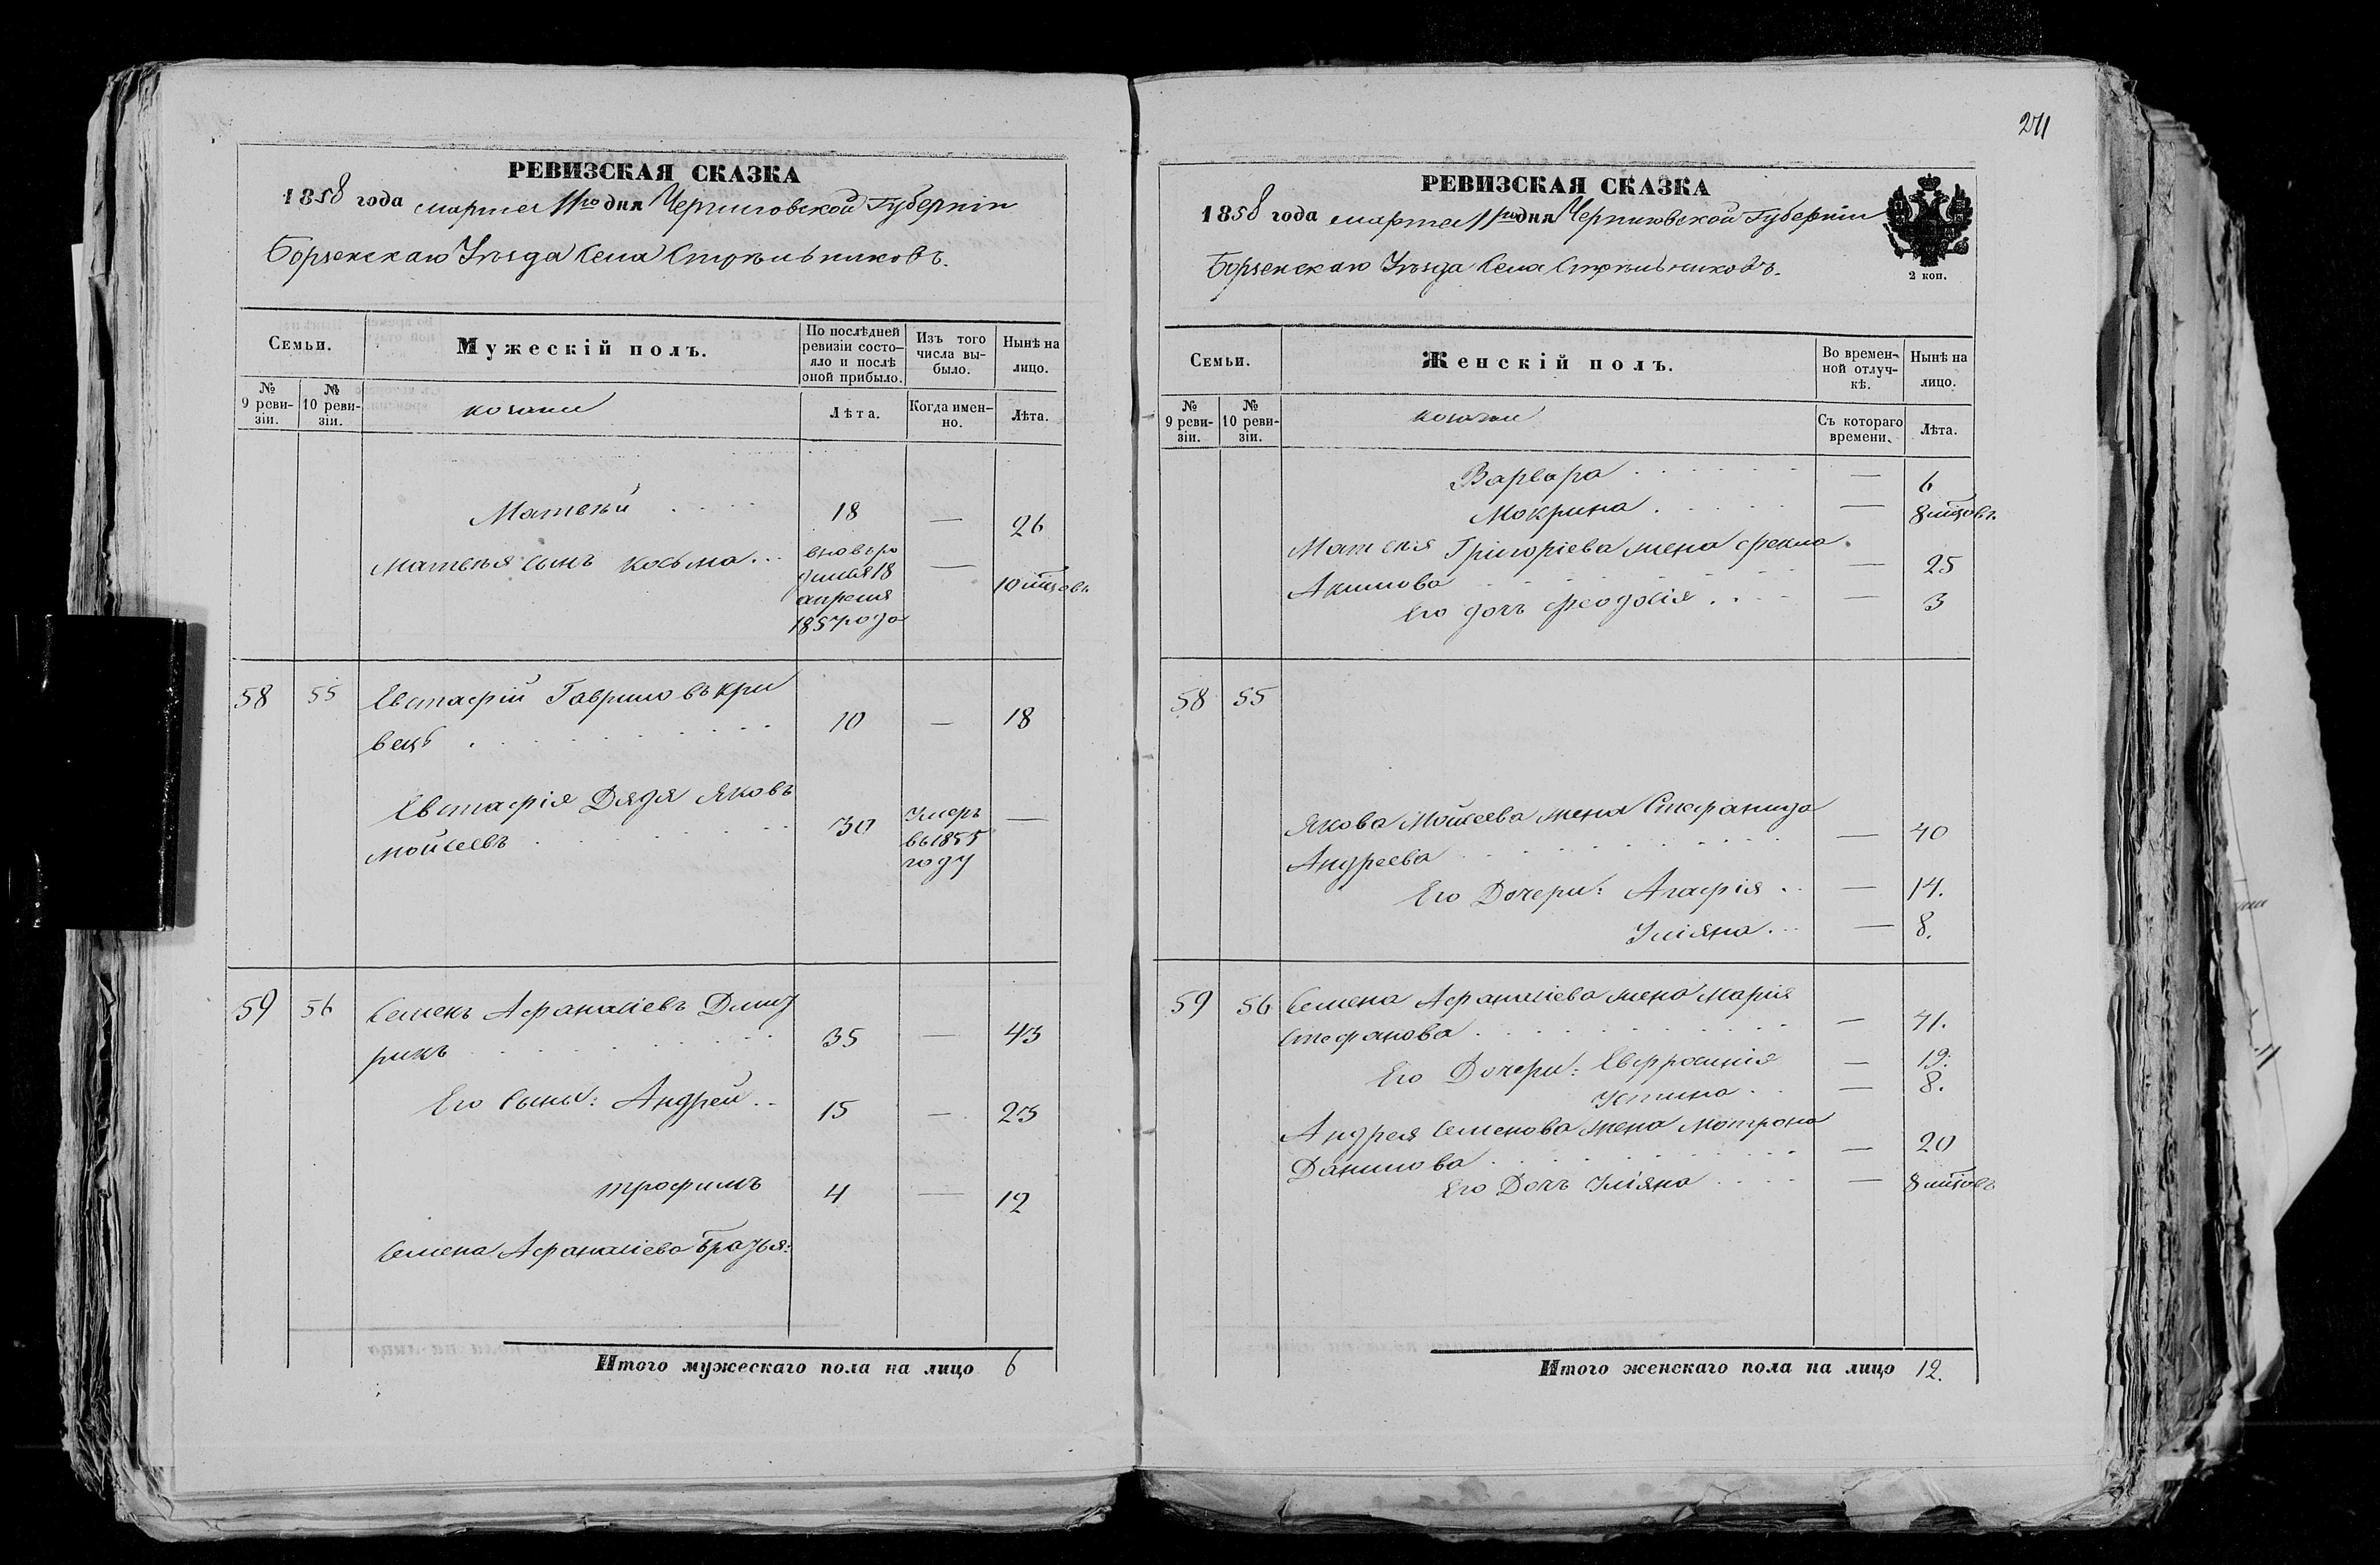 РЕВИЗСКАЯ СКАЗКА
1858 года марта 11го дня Черниговской Губерніи
Борзенскаго Уѣзда Села Стрѣльниковъ.
Семьи.
Мужескій полъ.
По послѣдней ревизіи состояло и послѣ оной прибыло.
Изъ того числа выбыло.
Нынѣ на лицо.
№ 9 ревизіи.
№ 10 ревизіи.
козаки
Лѣта.
Когда именно.
Лѣта.
Матвѣй . . . . 18 — 26
Матвѣя сынъ Косьма . . вновь ро
дился 18
апреля
1857 года
— 10 мцовъ
58 55 Евстафій Гавриловъ Кри
вецъ . . . 10 — 18
Евстафія Дядя Яковъ
Мойсеевъ . . . 30 умеръ
въ 1855
году
—
59 56 Семенъ Афанасіевъ Дмит
рикъ . . . 35 — 43
Его Сыны: Андрей . . 15 — 23
Трофимъ 4 — 12
Семена Афанасіева Братья:
Итого мужескаго пола на лицо 6
271
РЕВИЗСКАЯ СКАЗКА
1858 года марта 11го дня Черниговской Губерніи
Борзенскаго Уѣзда Села Стрѣльниковъ.
2 коп.
Семьи.
Женскій полъ.
Во временной отлучкѣ.
Нынѣ на лицо.
№ 9 ревизіи.
№ 10 ревизіи.
козачки
Съ котораго времени.
Лѣта.
Варвара . . . — 6
Мокрина . . . — 8 мцовъ
Матвѣя Григоріева жена Фекла
Акимова . . . — 25
Его дочь Феодосія . . . — 3
58 55
Якова Мойсеева жена Стефанида
Андреева . . . — 40
Его Дочери: Агафія . . — 14.
Уліяна . . . — 8.
59 56 Семена Афанасіева жена Марія
Стефанова . . . — 41.
Его Дочери: Евфросинія — 19.
Устина . . — 8.
Андрея Семенова жена Мотрона
Данилова . . . — 20
Его Дочь Уліяна . . . — 8 мцовъ
Итого женскаго пола на лицо 12.